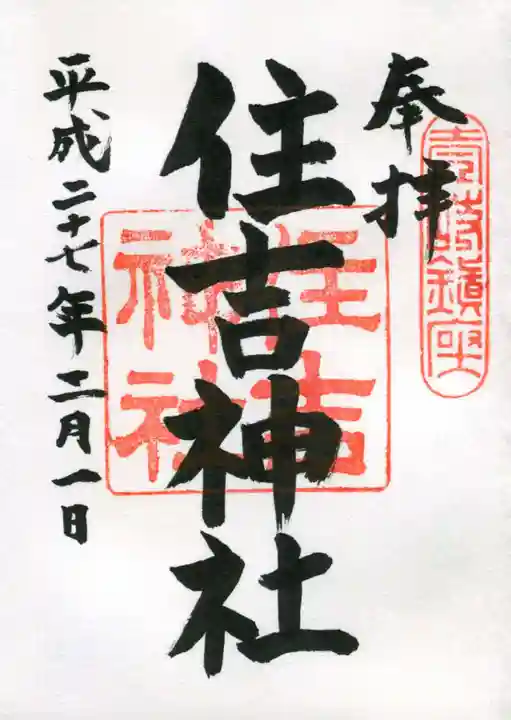 奉拝
壱岐鎮座
住吉神社
住吉
神社
平成二十七年二月一日